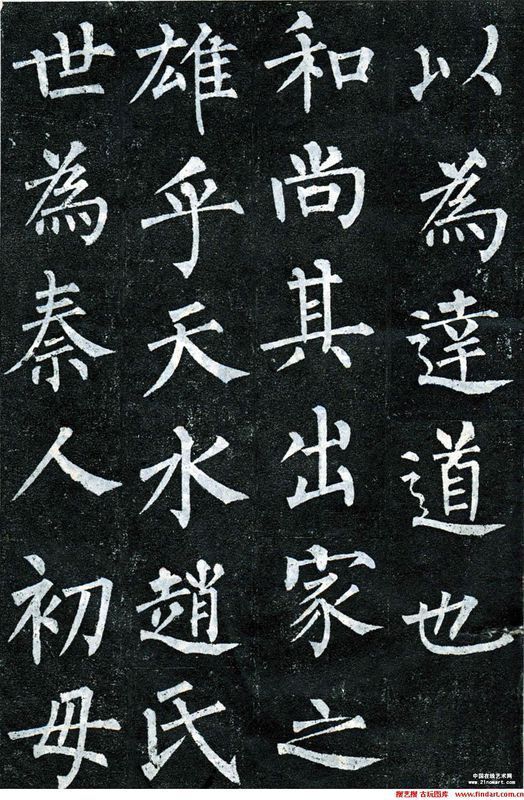 以為達道也
和尚其出家之
雄乎天水趙氏
世為秦人初母
中国在线艺术网
www.21nowart.com
搜艺搜 古玩图库 www.findart.com.cn